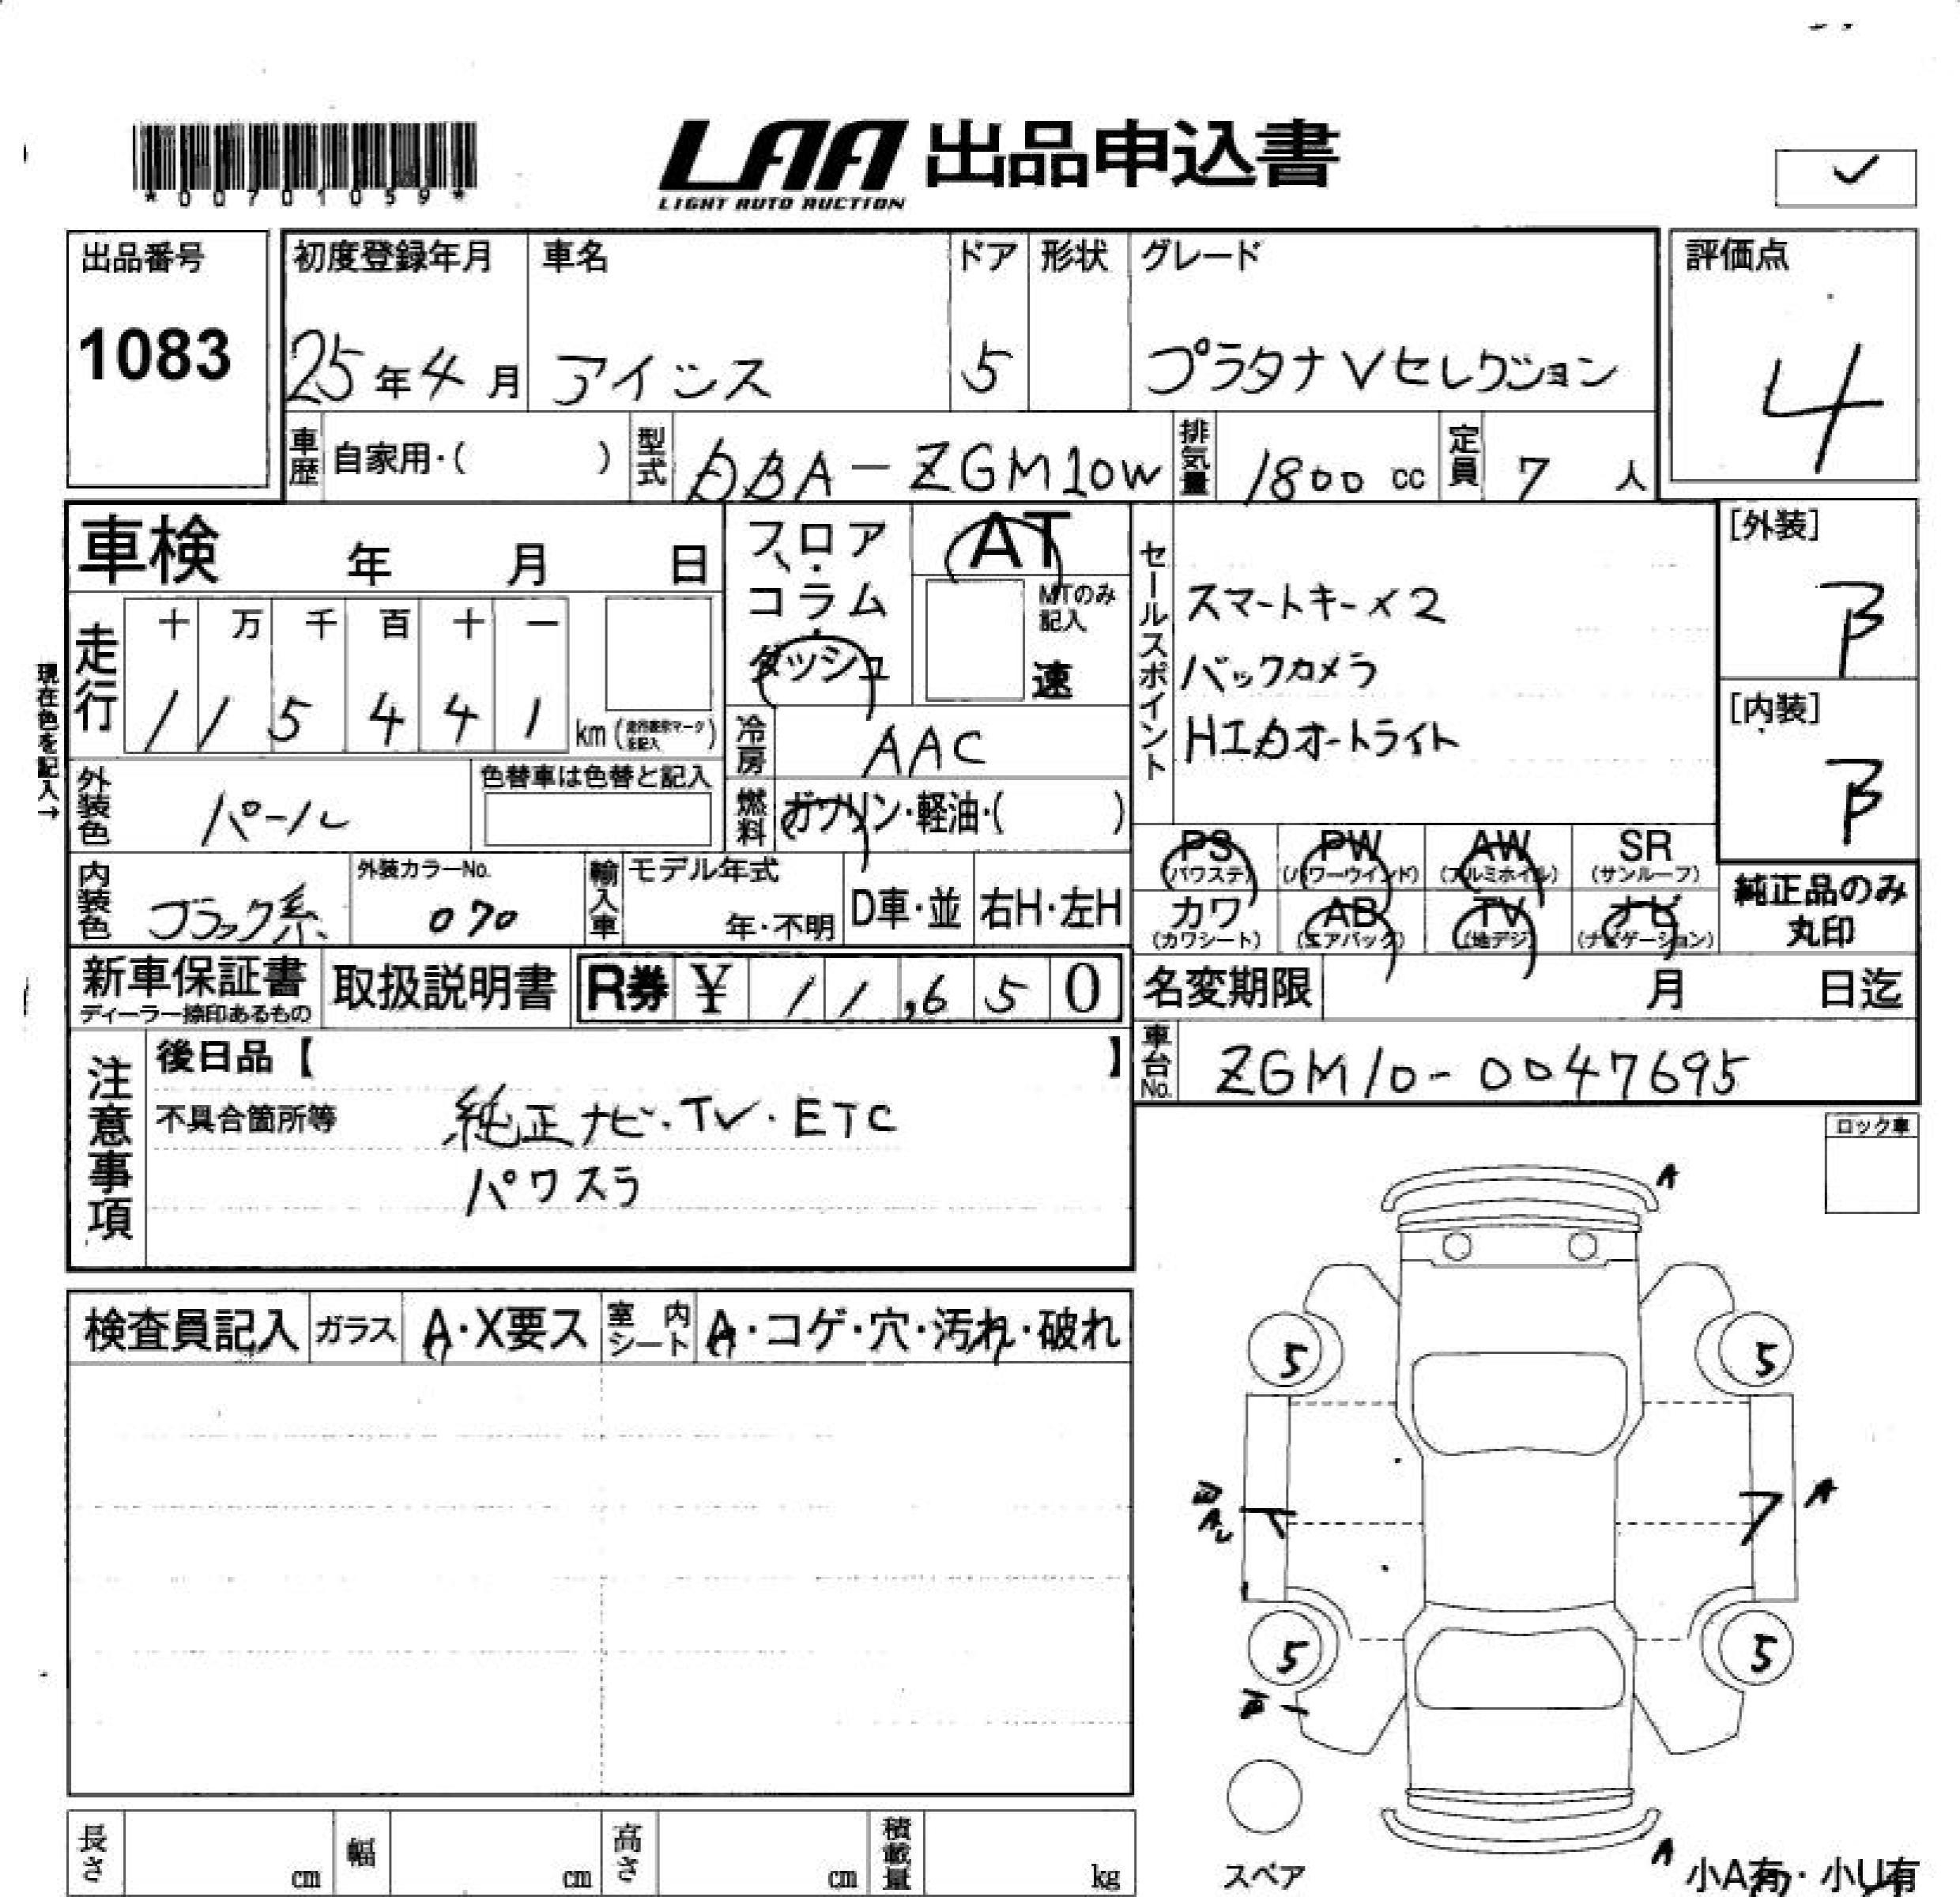 *00701059*
LAA 出品申込書
LIGHT AUTO AUCTION
出品番号
1083
初度登録年月
25年4月
車名
アイシス
ドア
5
形状
グレード
プラタナVセレクション
評価点
4
車歴 自家用・( )
型式 DBA-ZGM10W
排気量 1800 cc
定員 7 人
車検 年 月 日
フロア・
コラム・
ダッシュ
AT
MTのみ
記入
速
セールスポイント
スマートキー×2
バックカメラ
HIDオートライト
[外装]
B
[内装]
B
現在色を記入→
走行
十 万 千 百 十 一
1 1 5 4 4 1 km
冷房 AAC
外装色 パール
色替車は色替と記入
燃料 ガソリン・軽油・( )
PS (パワステ)
PW (パワーウインド)
AW (アルミホイル)
SR (サンルーフ)
カワ (カワシート)
AB (エアバック)
TV (地デジ)
ナビ (ナビゲーション)
純正品のみ
丸印
内装色 ブラック系
外装カラーNo.
070
輸入車
モデル年式
年・不明
D車・並
右H・左H
新車保証書
ディーラー捺印あるもの
取扱説明書
R券 ¥ 11,650
名変期限 月 日迄
車台No. ZGM10-0047695
注意事項
後日品【 】
不具合箇所等
純正ナビ・TV・ETC
パワスラ
ロック車
検査員記入
ガラス A・X要ス
室内シート A・コゲ・穴・汚れ・破れ
A
5 5
A
5 5
A
スペア
小A有・小U有
長さ cm
幅 cm
高さ cm
積載量 kg